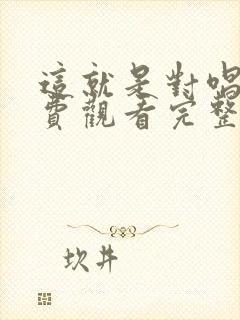 這就是對唱
費觀看完整
坎井